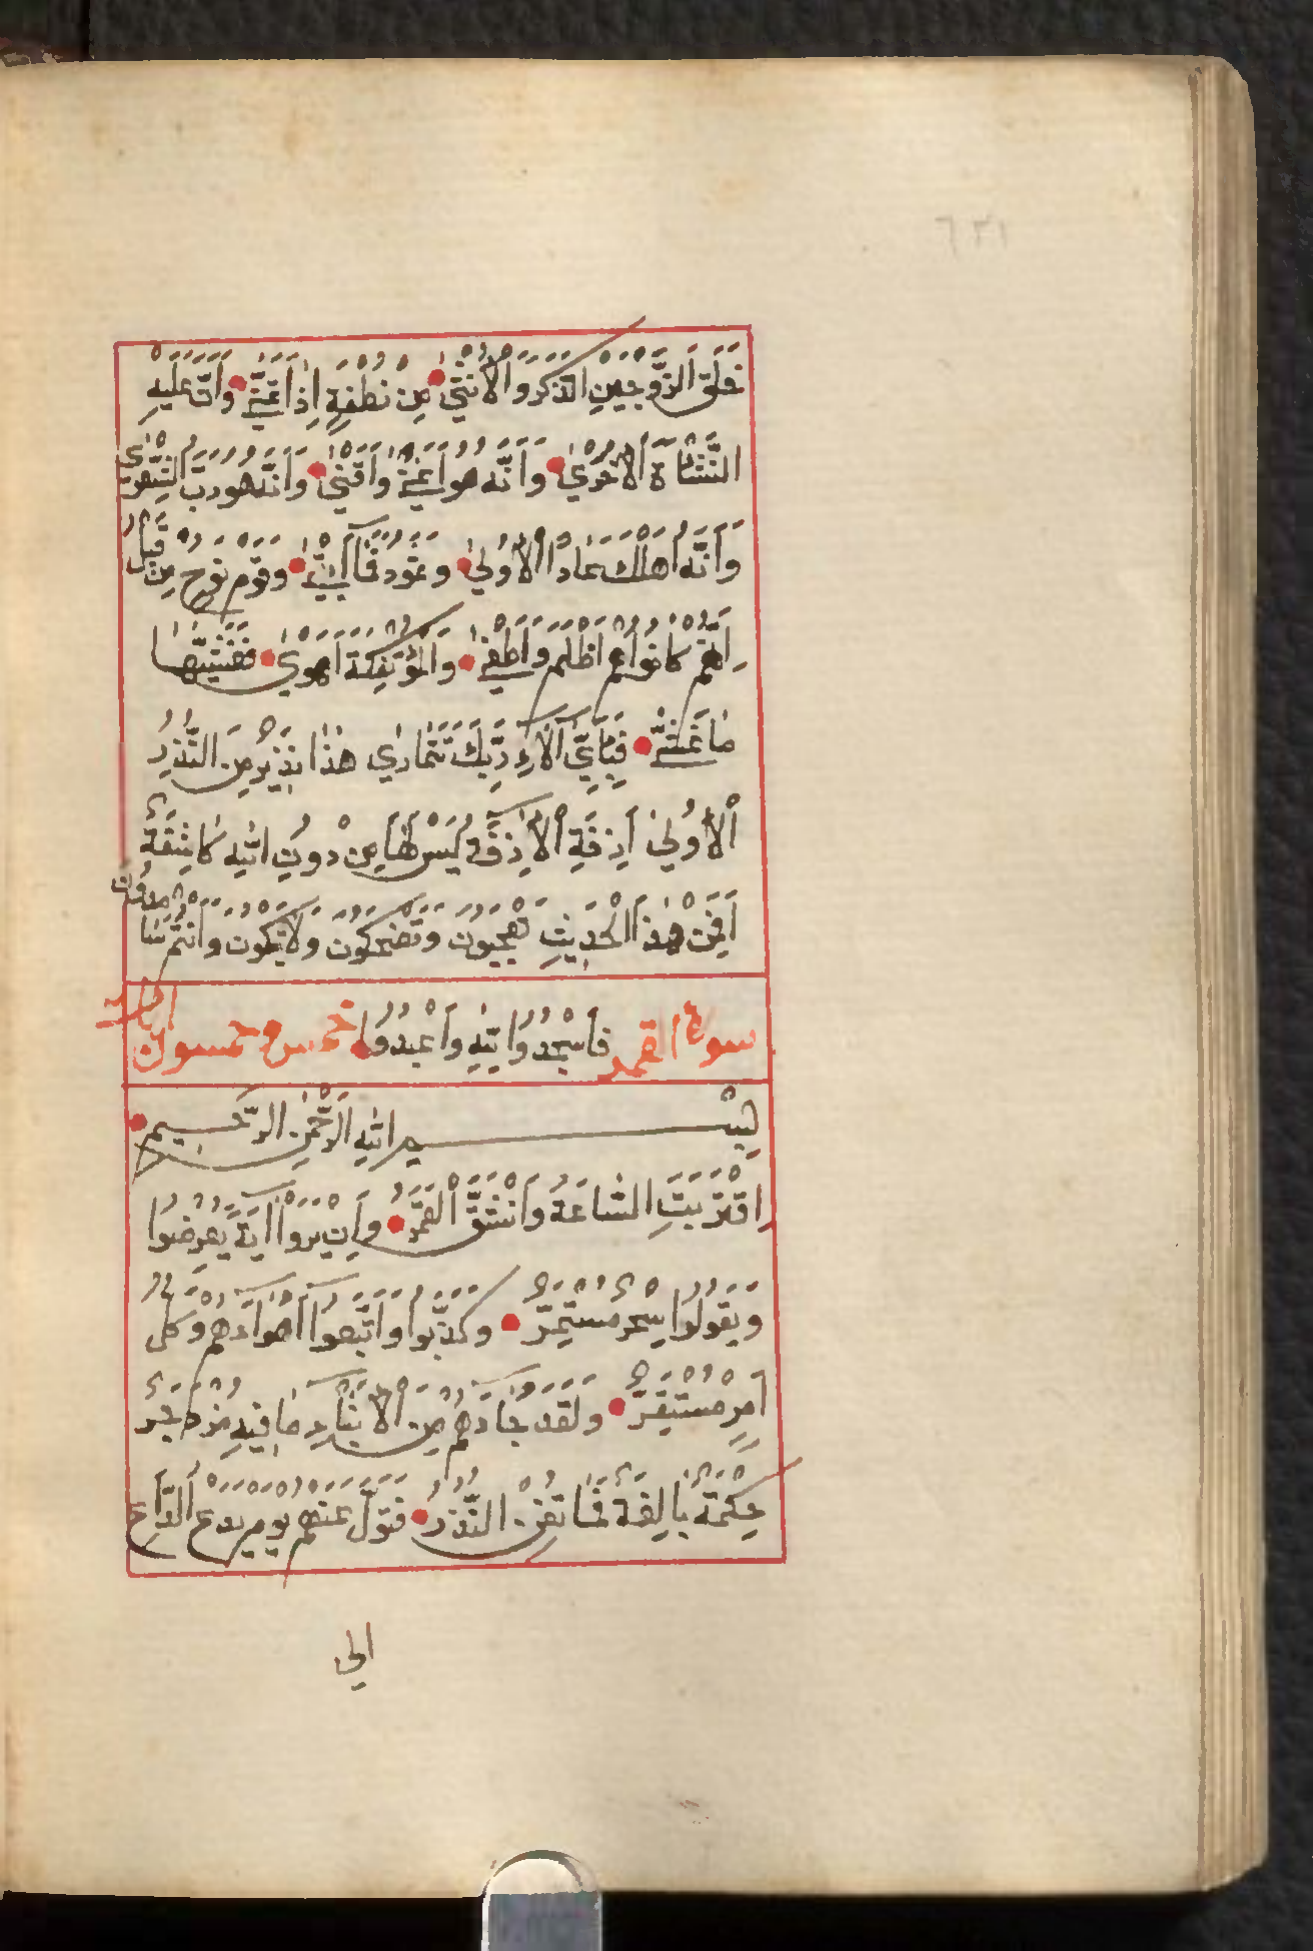 خَلَقَ الزَّوْجَيْنِ الذَّكَرَ وَالْأُنْثٰى مِنْ نُطْفَةٍ اِذَا تُمْنٰى وَاَنَّ عَلَيْهِ
النَّشْاَةَ الْاُخْرٰى وَاَنَّهُ هُوَ اَغْنٰى وَاَقْنٰى وَاَنَّهُ هُوَ رَبُّ الشِّعْرٰى
وَاَنَّهُ اَهْلَكَ عَادًا الْاُولٰى وَثَمُودَ فَمَا اَبْقٰى وَقَوْمَ نُوحٍ مِنْ قَبْلُ
اِنَّهُمْ كَانُوا هُمْ اَظْلَمَ وَاَطْغٰى وَالْمُؤْتَفِكَةَ اَهْوٰى فَغَشّٰيهَا
مَا غَشّٰى فَبِاَيِّ اٰلَاءِ رَبِّكَ تَتَمَارٰى هٰذَا نَذِيرٌ مِنَ النُّذُرِ
الْاُولٰى اَزِفَةِ الْاٰزِفَةُ لَيْسَ لَهَا مِنْ دُونِ اللّٰهِ كَاشِفَةٌ
اَفَمِنْ هٰذَا الْحَدِيثِ تَعْجَبُونَ وَتَضْحَكُونَ وَلَا تَبْكُونَ وَاَنْتُمْ سَامِدُونَ
سورة القمر فَاسْجُدُوا لِلّٰهِ وَاعْبُدُوا خمس وخمسون اية
بِسْمِ اللّٰهِ الرَّحْمٰنِ الرَّحِيمِ
اِقْتَرَبَتِ السَّاعَةُ وَانْشَقَّ الْقَمَرُ وَاِنْ يَرَوْا اٰيَةً يُعْرِضُوا
وَيَقُولُوا سِحْرٌ مُسْتَمِرٌّ وَكَذَّبُوا وَاتَّبَعُوا اَهْوَاءَهُمْ وَكُلُّ
اَمْرٍ مُسْتَقِرٌّ وَلَقَدْ جَاءَهُمْ مِنَ الْاَنْبَاءِ مَا فِيهِ مُزْدَجَرٌ
حِكْمَةٌ بَالِغَةٌ فَمَا تُغْنِ النُّذُرُ فَتَوَلَّ عَنْهُمْ يَوْمَ يَدْعُ الدَّاعِ
الى